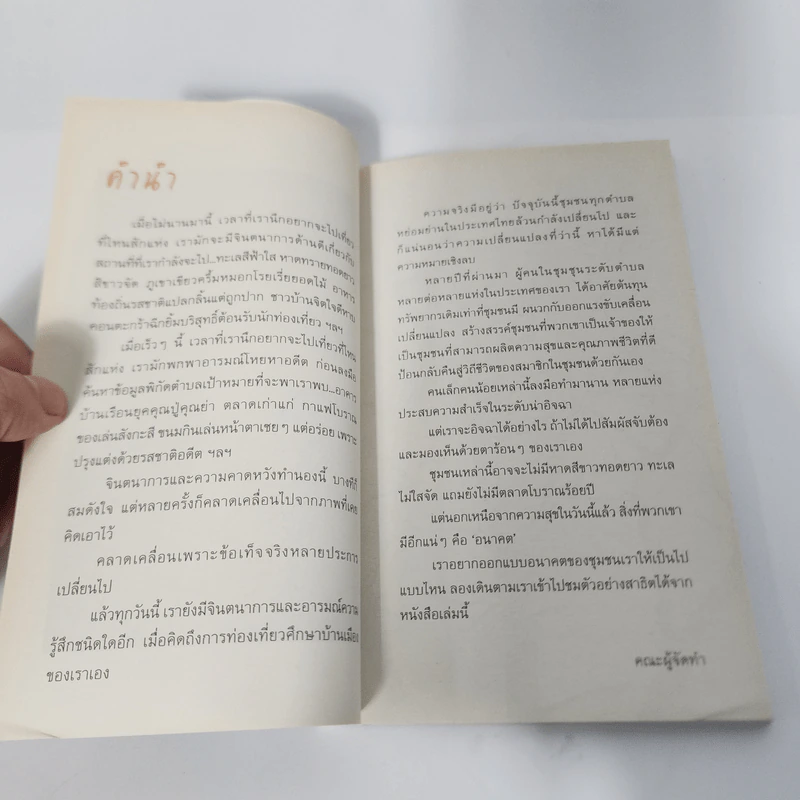 คำนำ
เมื่อไม่นานมานี้ เวลาที่เรานึกอยากจะไปเที่ยว
ที่ไหนสักแห่ง เรามักจะมีจินตนาการด้านดีเกี่ยวกับ
สถานที่ที่เรากำลังจะไป...ทะเลสีฟ้าใส หาดทรายทอดยาว
สีขาวจัด ภูเขาเขียวครึ้มหมอกโรยเรี่ยยอดไม้ อาหาร
ท้องถิ่นรสชาติแปลกลิ้นแต่ถูกปาก ชาวบ้านจิตใจดีหาบ
คอนตะกร้าฉีกยิ้มบริสุทธิ์ต้อนรับนักท่องเที่ยว ฯลฯ
เมื่อเร็วๆ นี้ เวลาที่เรานึกอยากจะไปเที่ยวที่ไหน
สักแห่ง เรามักพกพาอารมณ์โหยหาอดีต ก่อนลงมือ
ค้นหาข้อมูลพิกัดตำบลเป้าหมายที่จะพาเราพบ...อาคาร
บ้านเรือนยุคคุณปู่คุณย่า ตลาดเก่าแก่ กาแฟโบราณ
ของเล่นสังกะสี ขนมกินเล่นหน้าตาเชยๆ แต่อร่อย เพราะ
ปรุงแต่งด้วยรสชาติอดีต ฯลฯ
จินตนาการและความคาดหวังทำนองนี้ บางทีก็
สมดังใจ แต่หลายครั้งก็คลาดเคลื่อนไปจากภาพที่เคย
คิดเอาไว้
คลาดเคลื่อนเพราะข้อเท็จจริงหลายประการ
เปลี่ยนไป
แล้วทุกวันนี้ เรายังมีจินตนาการและอารมณ์ความ
รู้สึกชนิดใดอีก เมื่อคิดถึงการท่องเที่ยวศึกษาบ้านเมือง
ของเราเอง
ความจริงมีอยู่ว่า ปัจจุบันนี้ชุมชนทุกตำบล
หย่อมย่านในประเทศไทยล้วนกำลังเปลี่ยนไป และ
ก็แน่นอนว่าความเปลี่ยนแปลงที่ว่านี้ หาได้มีแต่
ความหมายเชิงลบ
หลายปีที่ผ่านมา ผู้คนในชุมชนระดับตำบล
หลายต่อหลายแห่งในประเทศของเรา ได้อาศัยต้นทุน
ทรัพยากรเดิมเท่าที่ชุมชนมี ผนวกกับออกแรงขับเคลื่อน
เปลี่ยนแปลง สร้างสรรค์ชุมชนที่พวกเขาเป็นเจ้าของให้
เป็นชุมชนที่สามารถผลิตความสุขและคุณภาพชีวิตที่ดี
ป้อนกลับคืนสู่วิถีชีวิตของสมาชิกในชุมชนด้วยกันเอง
คนเล็กคนน้อยเหล่านี้ลงมือทำมานาน หลายแห่ง
ประสบความสำเร็จในระดับน่าอิจฉา
แต่เราจะอิจฉาได้อย่างไร ถ้าไม่ได้ไปสัมผัสจับต้อง
และมองเห็นด้วยตาร้อนๆ ของเราเอง
ชุมชนเหล่านี้อาจจะไม่มีหาดสีขาวทอดยาว ทะเล
ไม่ใสจัด แถมยังไม่มีตลาดโบราณร้อยปี
แต่นอกเหนือจากความสุขในวันนี้แล้ว สิ่งที่พวกเขา
มีอีกแน่ๆ คือ 'อนาคต'
เราอยากออกแบบอนาคตของชุมชนเราให้เป็นไป
แบบไหน ลองเดินตามเราเข้าไปชมตัวอย่างสาธิตได้จาก
หนังสือเล่มนี้
คณะผู้จัดทำ